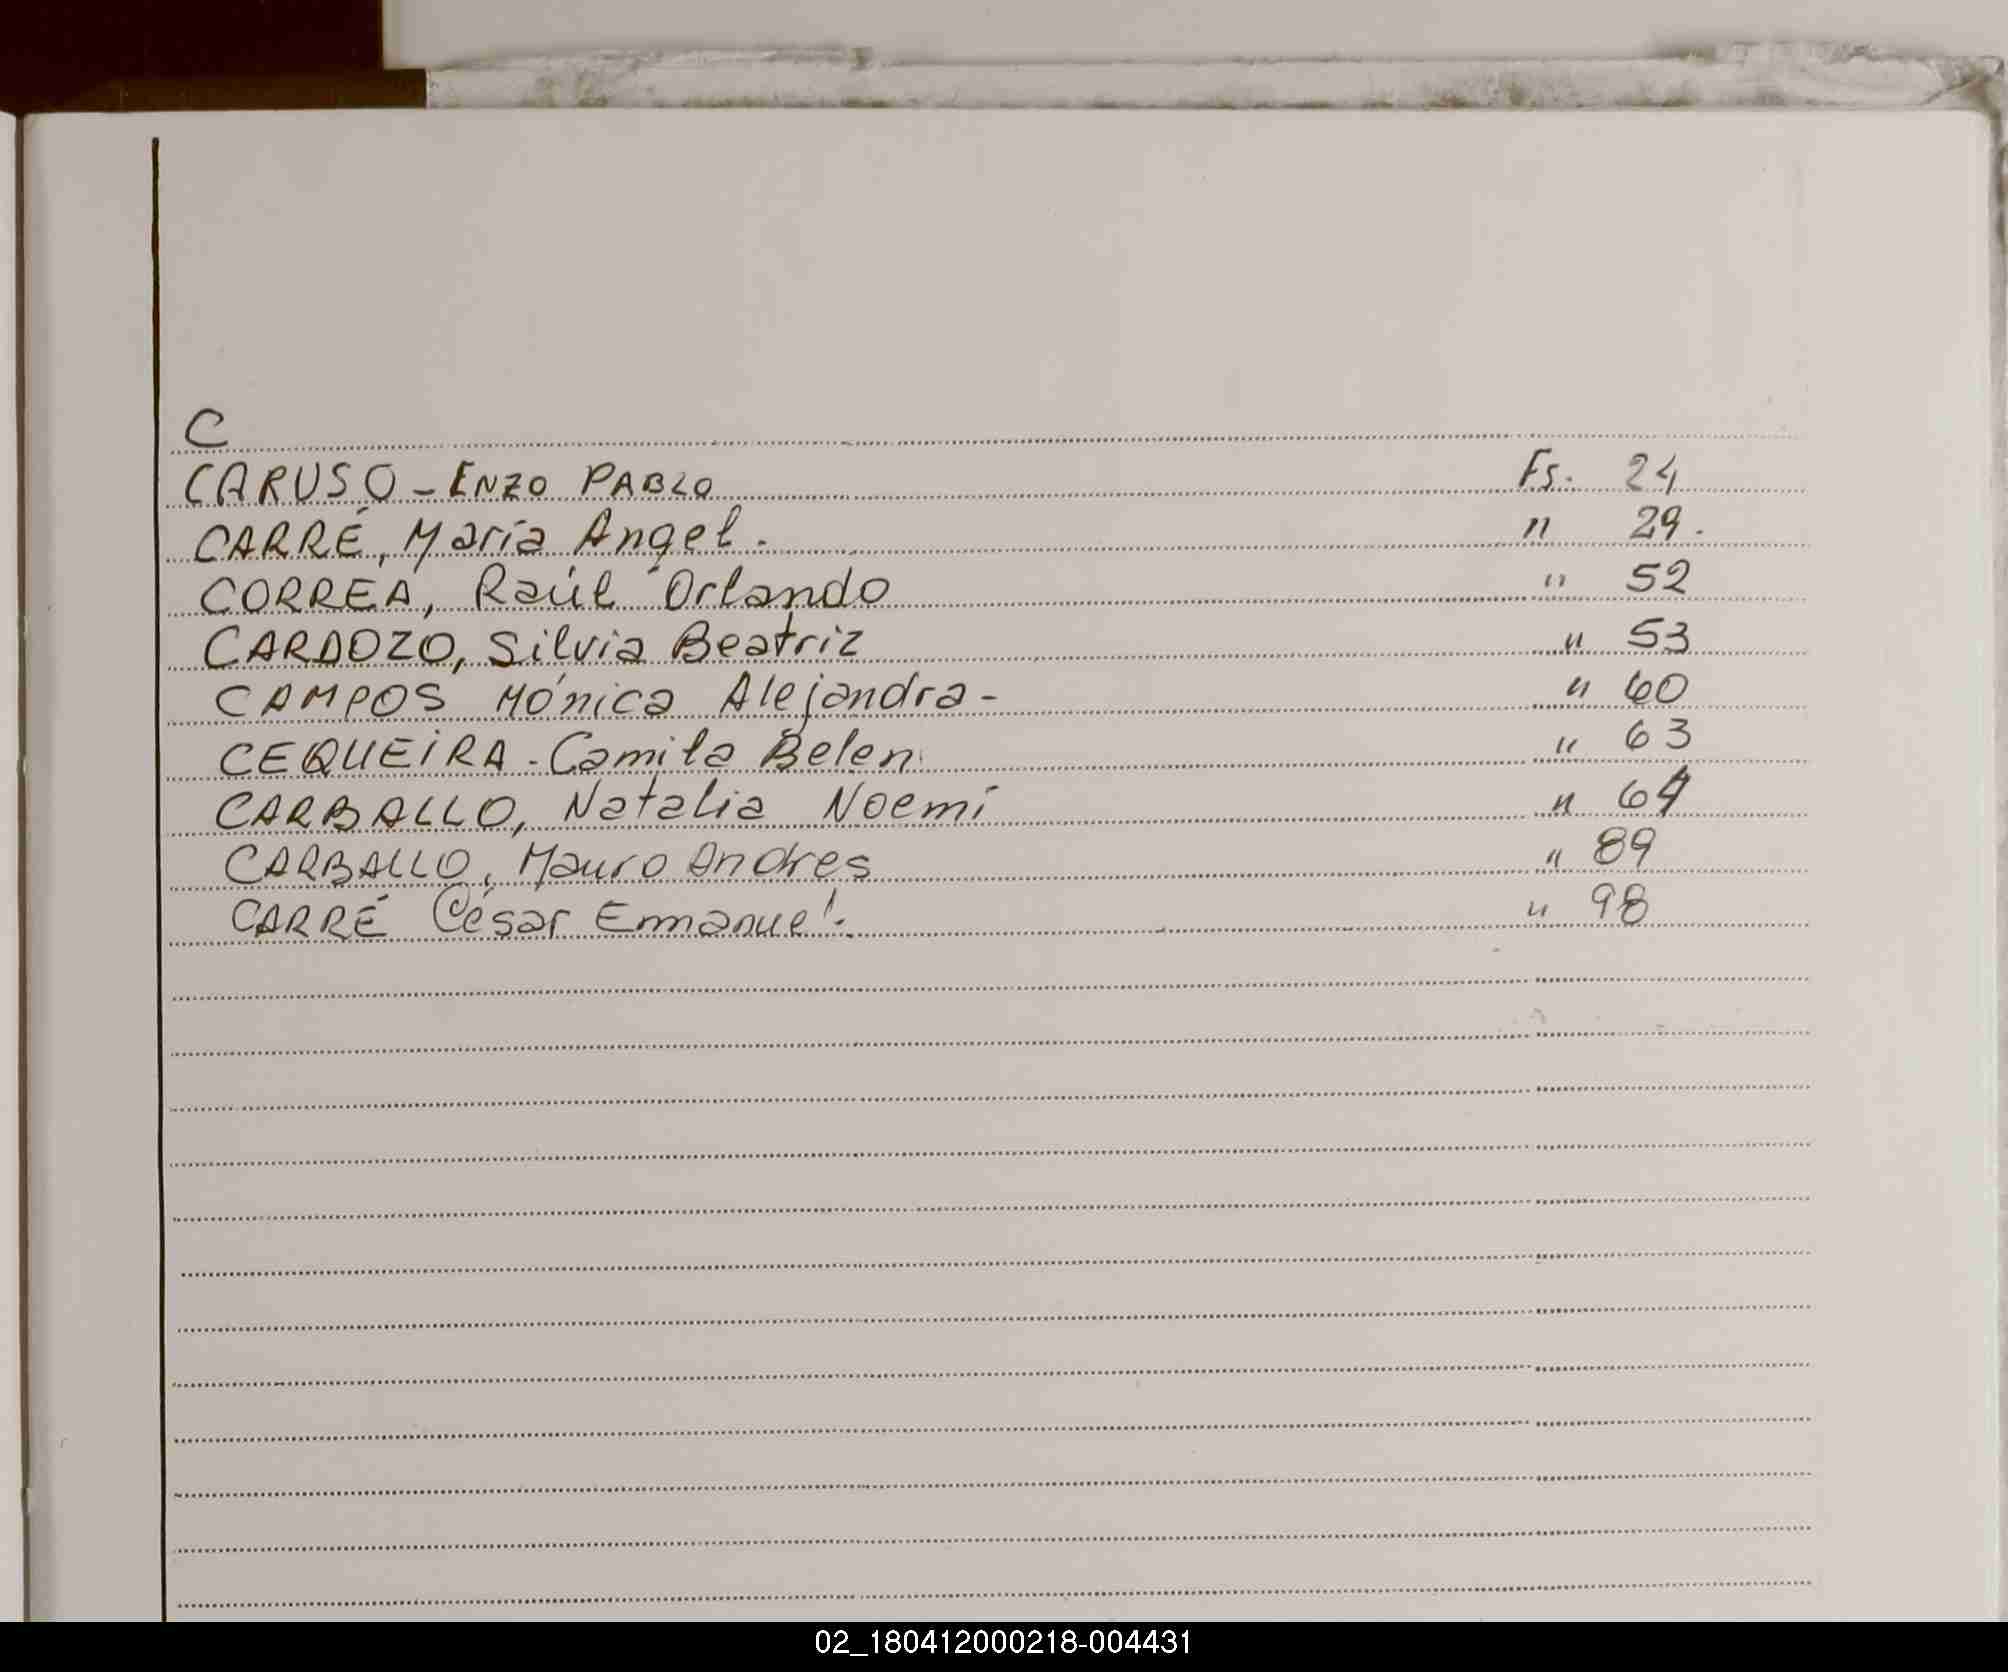 C
CARUSO - ENZO PABLO Fs. 24
CARRÉ, María Angel. " 29.
CORREA, Raúl Orlando " 52
CARDOZO, Silvia Beatriz " 53
CAMPOS Mónica Alejandra - " 60
CEQUEIRA - Camila Belen " 63
CARBALLO, Natalia Noemí " 64
CARBALLO, Mauro Andres " 89
CARRÉ César Emmanuel. " 98
02_180412000218-004431